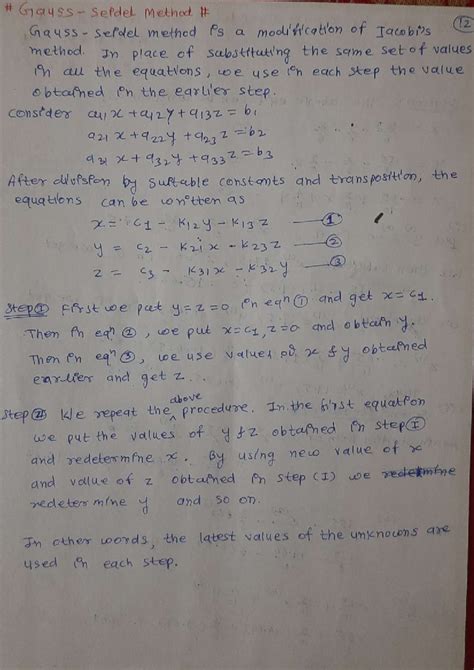 # Gauss - Seidel Method #
(12)
Gauss - Seidel method is a modification of Jacobi's
method. In place of substituting the same set of values
in all the equations, we use in each step the value
obtained in the earlier step.
Consider a11 x + a12 y + a13 z = b1
a21 x + a22 y + a23 z = b2
a31 x + a32 y + a33 z = b3
After division by suitable constants and transposition, the
equations can be written as
x = c1 - k12 y - k13 z —①
y = c2 - k21 x - k23 z —②
z = c3 - k31 x - k32 y —③
Step ① First we put y = z = 0 in eqn ① and get x = c1.
Then in eqn ②, we put x = c1, z = 0 and obtain y.
Then in eqn ③, we use values of x & y obtained
earlier and get z.
Step ② We repeat the above procedure. In the first equation
we put the values of y & z obtained in step (I)
and redetermine x. By using new value of x
and value of z obtained in step (I) we redetermine
redetermine y and so on.
In other words, the latest values of the unknowns are
used in each step.